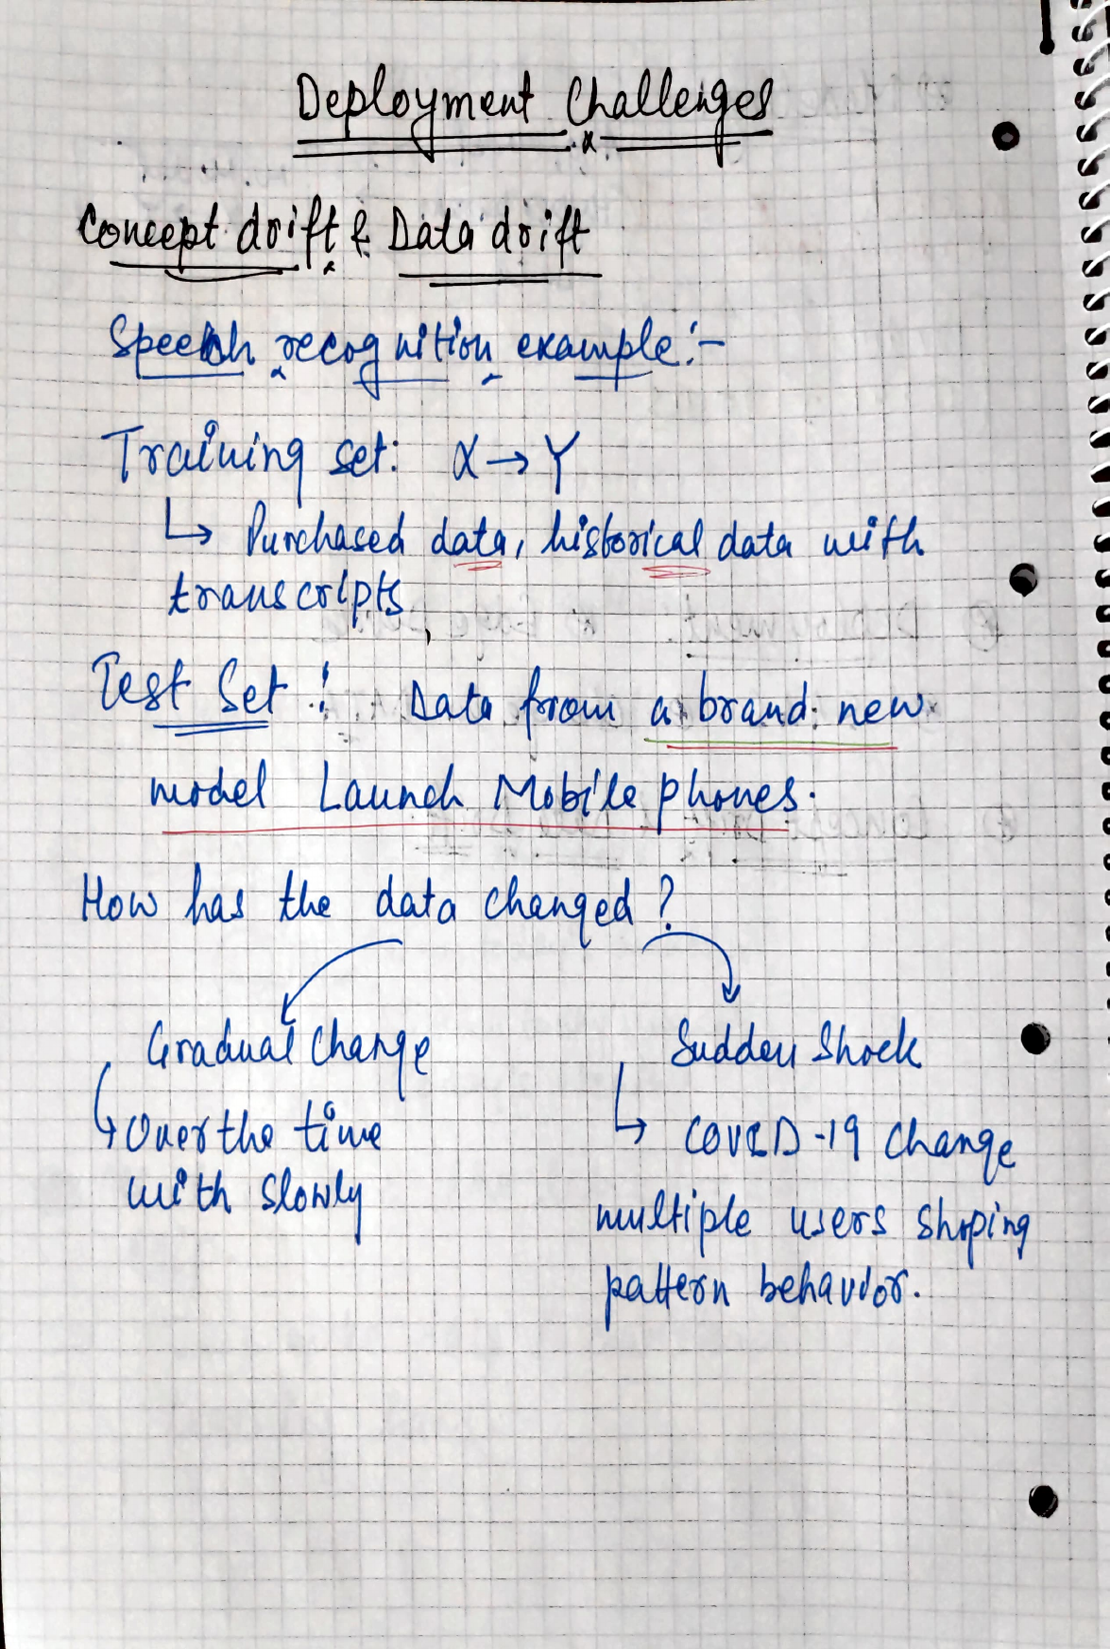 Deployment Challenges
Concept drift & Data drift
Speech recognition example:-
Training set: X → Y
↳ Purchased data, historical data with
transcripts
Test Set: Data from a brand new
model Launch Mobile phones.
How has the data changed?
Gradual Change
↳ Over the time
with slowly
Sudden Shock
↳ COVID-19 change
multiple users shoping
pattern behavior.